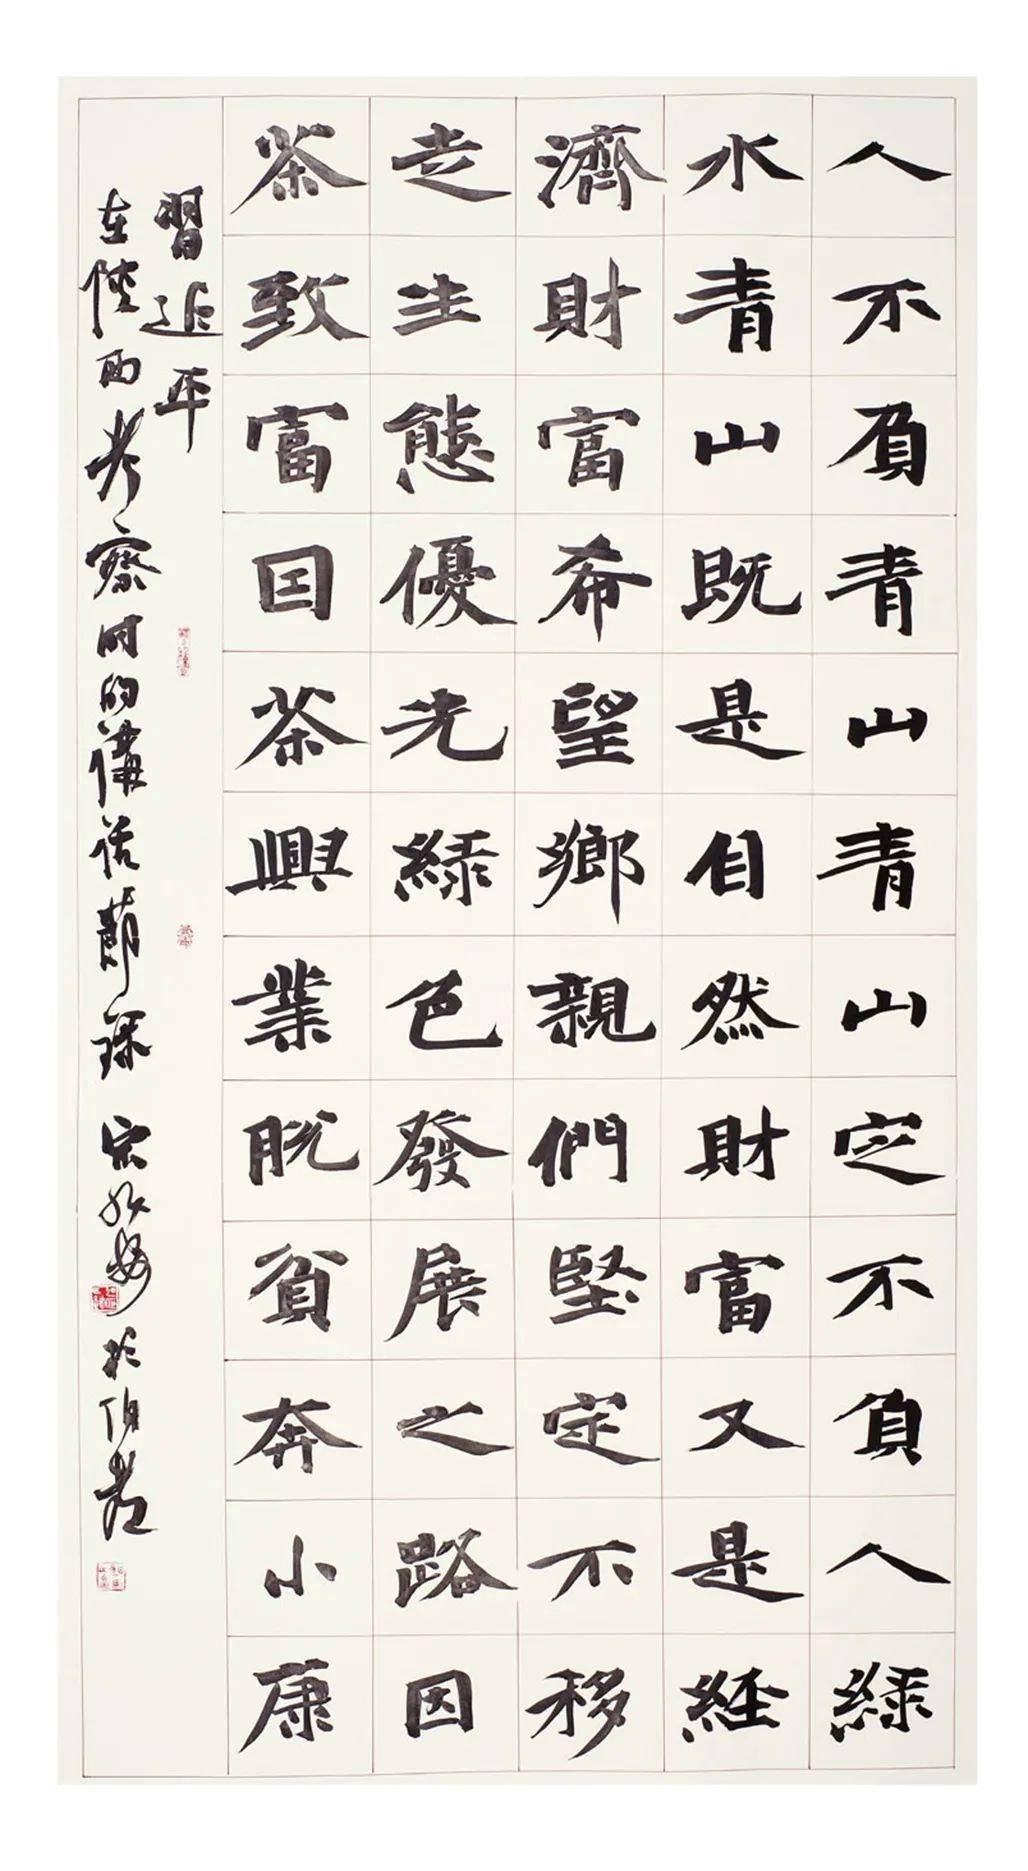 人不負青山青山定不負人綠
水青山既是自然財富又是經
濟財富希望鄉親們堅定不移
走生態優先綠色發展之路因
茶致富囙茶興業脫貧奔小康
習近平
在陝西考察时的講話節録 宋 於